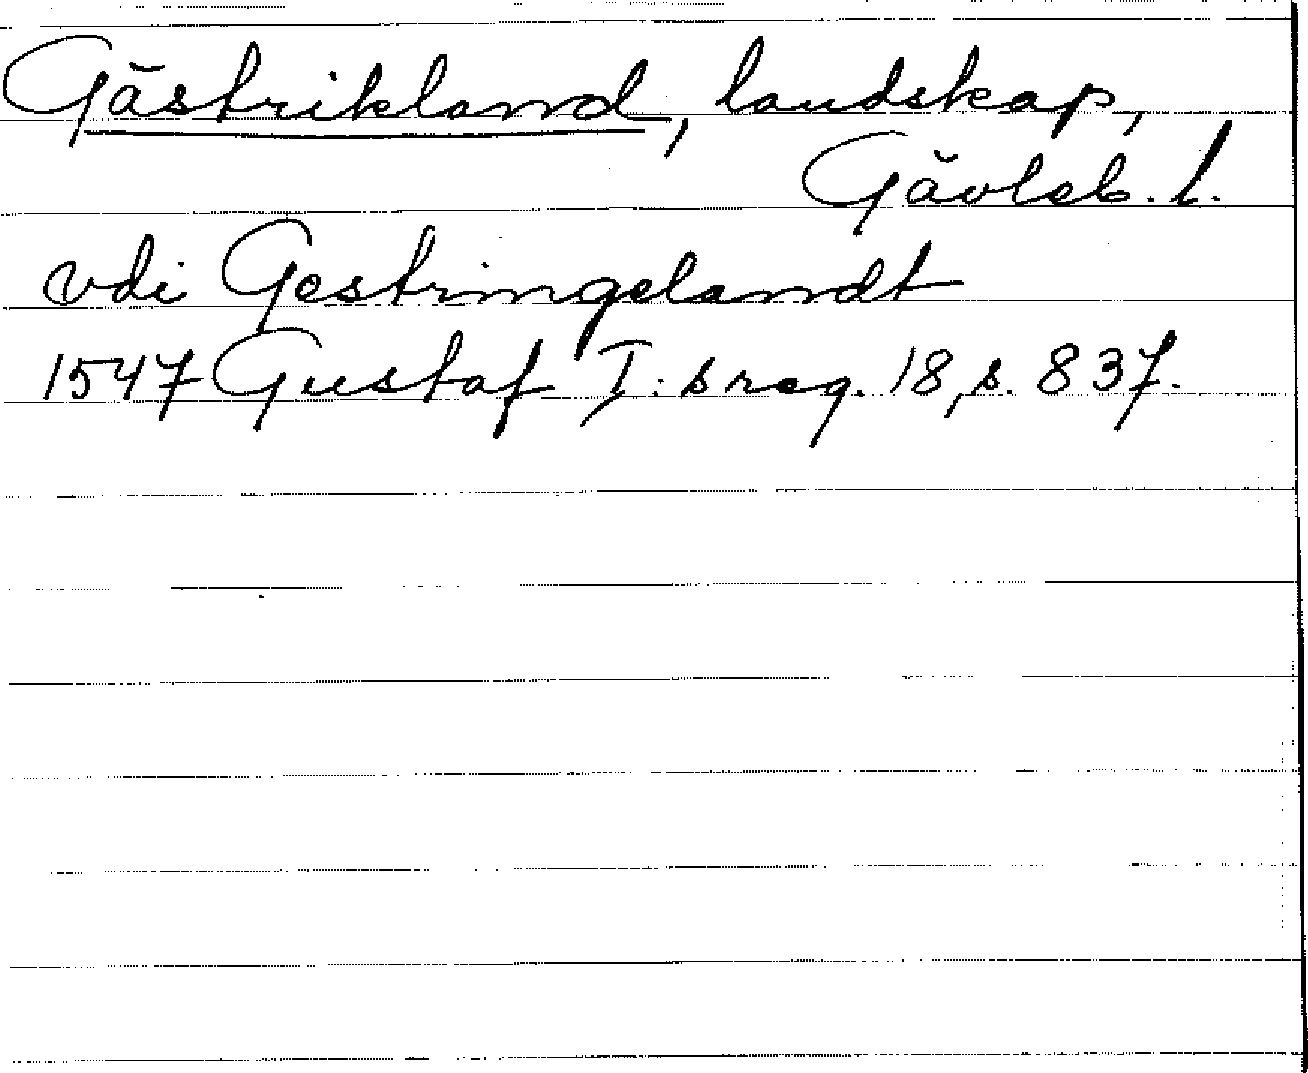 Gästrikland, landskap,
Gävleb. l.
vdi Gestringelandt
1547 Gustaf I:s reg. 18, s. 837.